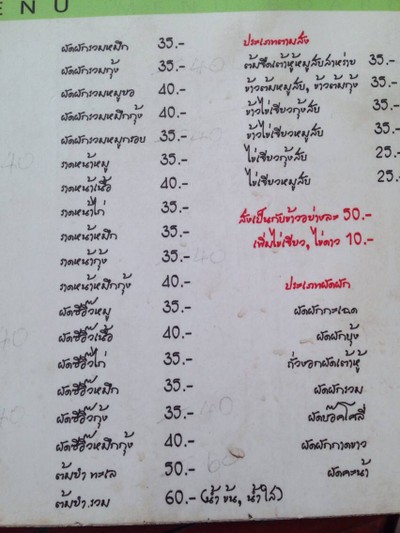 ENU
ผัดผักรวมหมึก 35.-
ผัดผักรวมกุ้ง 35.-
ผัดผักรวมหมูชอ 40.-
ผัดผักรวมหมึกกุ้ง 40.-
ผัดผักรวมหมูกรอบ 35.-
ราดหน้าหมู 35.-
ราดหน้าเนื้อ 40.-
ราดหน้าไก่ 35.-
ราดหน้าหมึก 35.-
ราดหน้ากุ้ง 35.-
ราดหน้าหมึกกุ้ง 40.-
ผัดซีอิ๊วหมู 35.-
ผัดซีอิ๊วเนื้อ 40.-
ผัดซีอิ๊วไก่ 35.-
ผัดซีอิ๊วหมึก 35.-
ผัดซีอิ๊วกุ้ง 35.-
ผัดซีอิ๊วหมึกกุ้ง 40.-
ต้มยำ ทะเล 50.-
ต้มยำ รวม 60.- (น้ำ ข้น, น้ำ ใส)
ประเภทตามสั่ง
ต้มจืดเต้าหู้หมูสับสาหร่าย 35.-
ข้าวต้มหมูสับ, ข้าวต้มกุ้ง 35.-
ข้าวไข่เจียวกุ้งสับ 35.-
ข้าวไข่เจียวหมูสับ 35.-
ไข่เจียวกุ้งสับ 25.-
ไข่เจียวหมูสับ 25.-
สั่งเป็นกับข้าวอย่างละ 50.-
เพิ่มไข่เจียว, ไข่ดาว 10.-
ประเภทผัดผัก
ผัดผักกระเฉด
ผัดผักบุ้ง
ถั่วงอกผัดเต้าหู้
ผัดผักรวม
ผัดบ๊อคโคลี่
ผัดผักกาดขาว
ผัดคะน้า